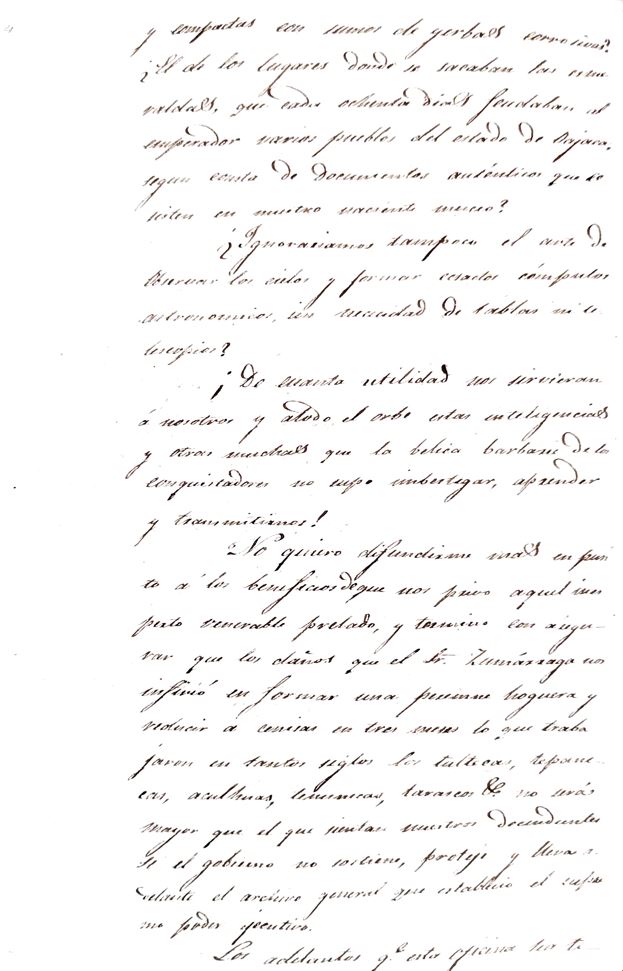 y compactas con sumos de yerbas corrosivas?
¿El de los lugares donde se sacaban las esme
raldas, que cada ochenta dias feudaban al
emperador varios pueblos del estado de Oajaca,
segun consta de Documentos autenticos que ec
sisten en nuestro naciente museo?
¿Ignorariamos tampoco el arte de
observar los cielos y formar ecsactos cómputos
astronomicos, sin necesidad de tablas ni te
lescopios?
¡De cuanta utilidad nos sirvieran
á nosotros y átodo el orbe estas inteligencias
y otras muchas que la belica barbarie de los
conquistadores no supo imbestigar, aprender
y transmitirnos!
No quiero difundirme mas en pun
to á los beneficios deque nos privo aquel ines
perto venerable prelado, y termino con augu-
rar que los daños que el Sr. Zumárraga nos
infirió en formar una perenne hoguera y
reducir á cenisas en tres meses lo que traba
jaron en tantos siglos los tultecas, tepane-
cas, aculhuas, tarascos &c. no será
mayor que el que sientan nuestros decendientes
si el gobierno no sostiene, proteje y lleva a-
delante el archivo general que establecio el supre
mo poder ejecutivo.
Los adelantos q.e esta oficina ha te-